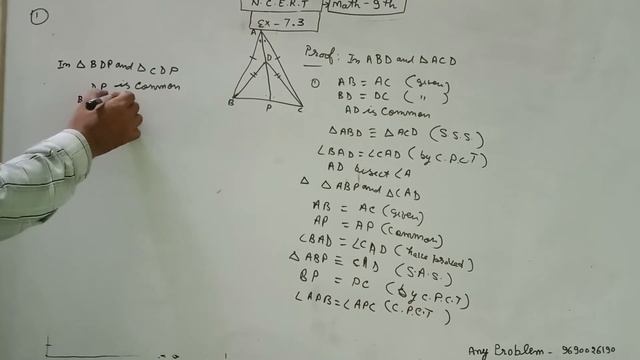 N.C.E.R.T → Math - 9th
Ex - 7.3
①
In △ BDP and △ CDP
DP is common
B
A
D
B
P
C
Proof: In ABD and △ ACD
① AB = AC (given)
BD = DC ( " )
AD is common
△ ABD ≡ △ ACD (S.S.S.)
∠BAD = ∠CAD (by C.P.C.T)
AD bisect ∠A
△ △ ABP and △ CAD
AB = AC (given)
AP = AP (common)
∠BAD = ∠CAD (have proved)
△ ABP ≡ CAD (S.A.S.)
BP = PC (by C.P.C.T)
∠APB = ∠APC (C.P.C.T)
Any Problem - 9690026190